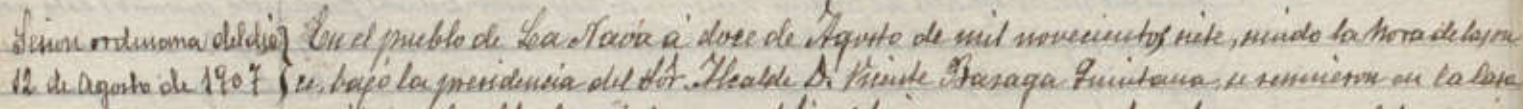 Sesion ordinaria del dia } En el pueblo de La Nava á doce de Agosto de mil novecientos siete, siendo la hora de las on
12 de Agosto de 1907 } ce, bajo la presidencia del Sór. Alcalde D. Vicente Basaga Quintana, se reunieron en la Casa